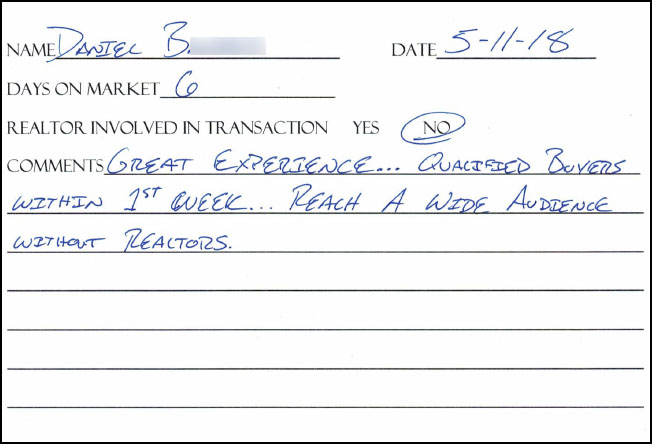 NAME DANIEL B. DATE 5-11-18
DAYS ON MARKET 6
REALTOR INVOLVED IN TRANSACTION YES NO
COMMENTS GREAT EXPERIENCE... QUALIFIED BUYERS
WITHIN 1ST WEEK... REACH A WIDE AUDIENCE
WITHOUT REALTORS.